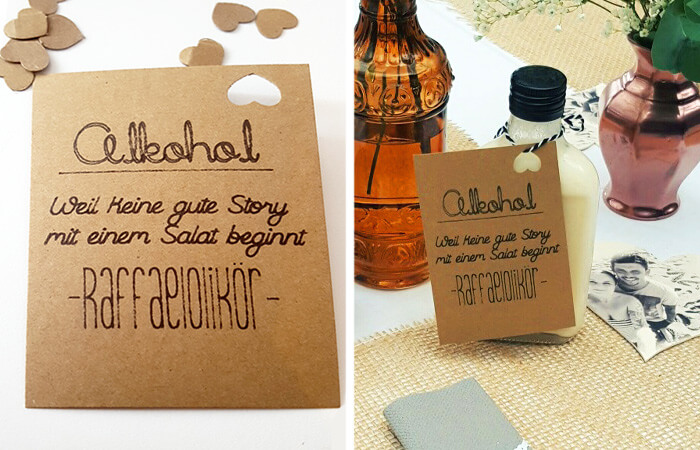 Alkohol
Weil keine gute Story
mit einem Salat beginnt
-Raffaelolikör-
Alkohol
Weil keine gute Story
mit einem Salat beginnt
-Raffaelolikör-